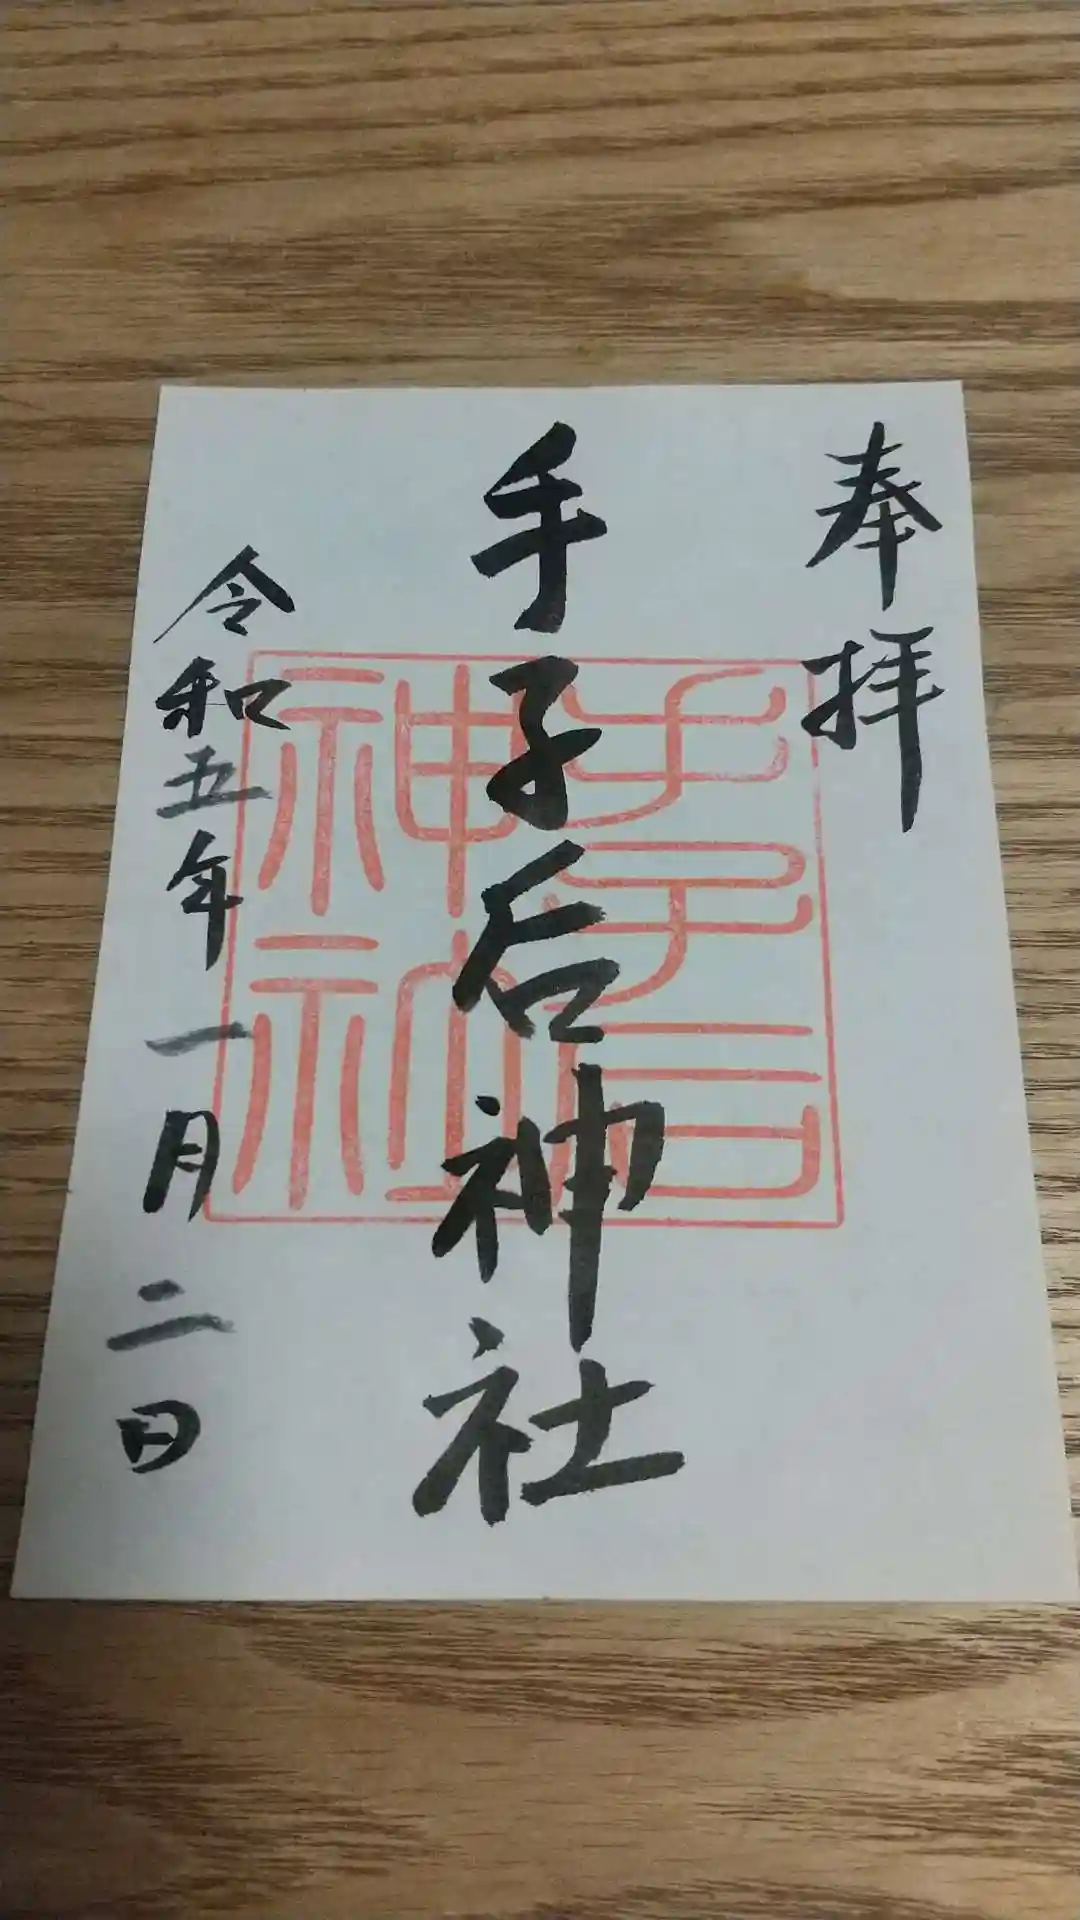 奉拝
手子后神社
令和五年一月二日
手子后
神社